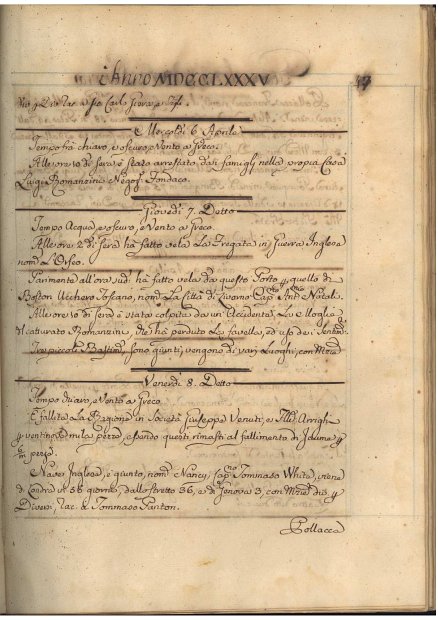 Anno MDCCLXXXV
47
Carlo
Mercoldì 6 Aprile
Tempo frà chiaro, e oscuro, e Vento a Greco.
Alle ore 10 di sera è stato arrestato, dai famigli nella propia Casa
Luigi Bomanzini Negoz.
Giovedì 7. Detto
Tempo Acqua, e oscuro, e Vento a Greco.
Alle ore 2 di sera hà fatto vela La Fregata in Guerra Inglese
nom. L'Orfeo.
Parimente all'ora sud. hà fatto vela da questo Porto p. quello di
Boston Toscano, nom. La Città di Livorno Cap.no Ant.o Natale.
Alle ore 10 di sera è stata colpita da un Accidente La Moglie
del catturato Bomanzini, che hà perduto La favella, ed uso de
Tre piccoli Bastim. sono giunti, vengono di varj Luoghi, con
Venerdì 8. Detto
Tempo chiaro, e Vento a Greco
È fallita La Ragione in Società Giuseppe Venuti, e Arrighi
p. ventinove mila pezze, essendo questi rimasti al fallimento di
pezze
Nave Inglese, è giunto, nom. Nancy, Cap.no Tommaso White, viene
di Londra in 56 giorni, dallo stretto 36, e di Genova 3, con
Diversi, Rac. a Tommaso Panton.
Pollacca